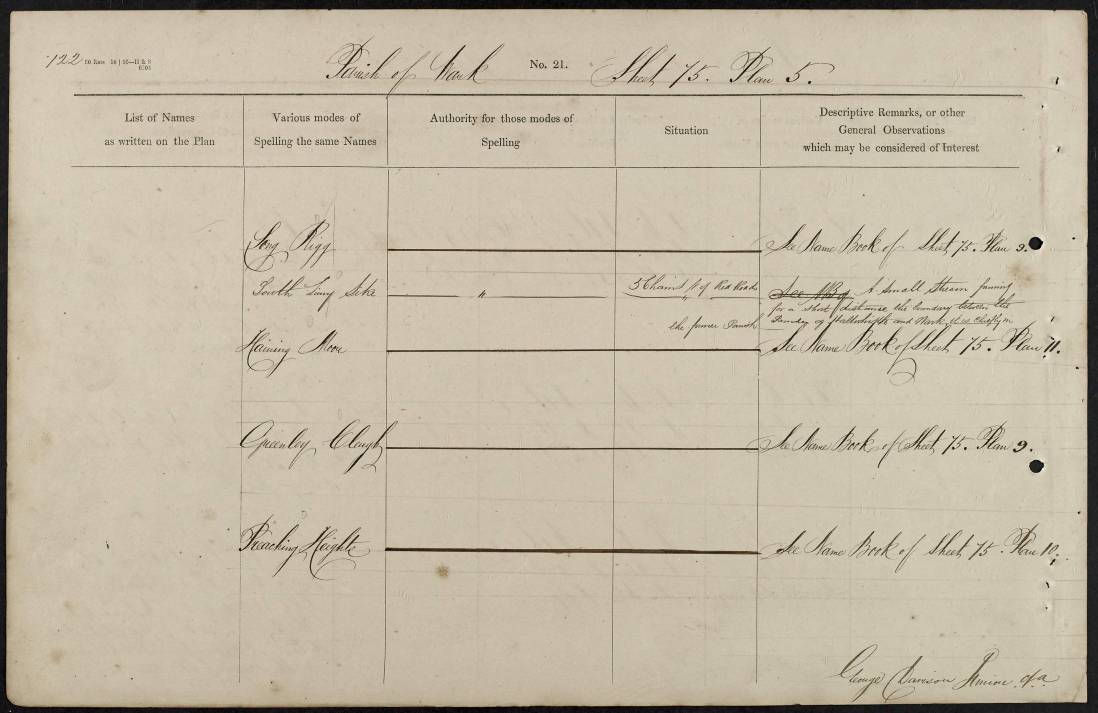 122
Parish of Wark No. 21. Sheet 75. Plan 5.
List of Names
as written on the Plan
Various modes of
Spelling the same Names
Authority for those modes of
Spelling
Situation
Descriptive Remarks, or other
General Observations
which may be considered of Interest
Long Rigg See Name Book of Sheet 75. Plan 9.
South Ling Sike " 5 Chains of Red Road
See NB of A small Stream forming
for a short distance the boundary between the
the former Parish
Parishes of Haltwhistle and Wark it is chiefly in
Haining Moor See Name Book of Sheet 75. Plan 11.
Greenley Cleugh See Name Book of Sheet 75. Plan 9.
Preaching Heights See Name Book of Sheet 75. Plan 10.
George Davison Junior